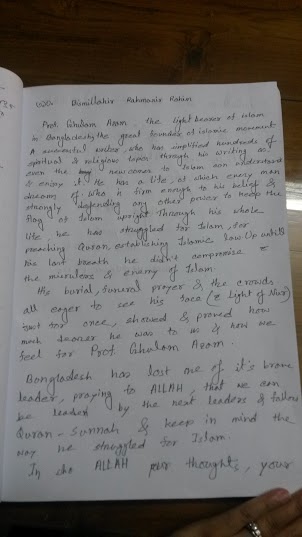 Bismillahir Rahmanir Rahim
Prof. Ghulam Azam, the light bearer of islam
in Bangladesh, the great founder of islamic movement
A monumental writer who has simplified hundreds of
spiritual & religious topic through his writing as
even the new comer to Islam can understand
& enjoy it. He has a life, of which every man
dreams of. Who is firm enough to his belief &
strongly depending any other power to keep the
flag of Islam upright. Through his whole
life he has struggled for Islam, for
preaching Quran, establishing Islamic law. Up until
his last breath he didn't compromise
the & enemy of Islam.
His burial, funeral prayer & the crowds
all eager to see his face ( light of Nur)
for once, showed & proved how
much he was to us & how we
feel for Prof. Ghulam Azam.
Bangladesh has lost one of it's brave
leader, praying to ALLAH, that we can
be leaded by the next leaders & follow
Quran - Sunnah & keep in mind the
way he struggled for Islam.
In sha ALLAH your thoughts, your